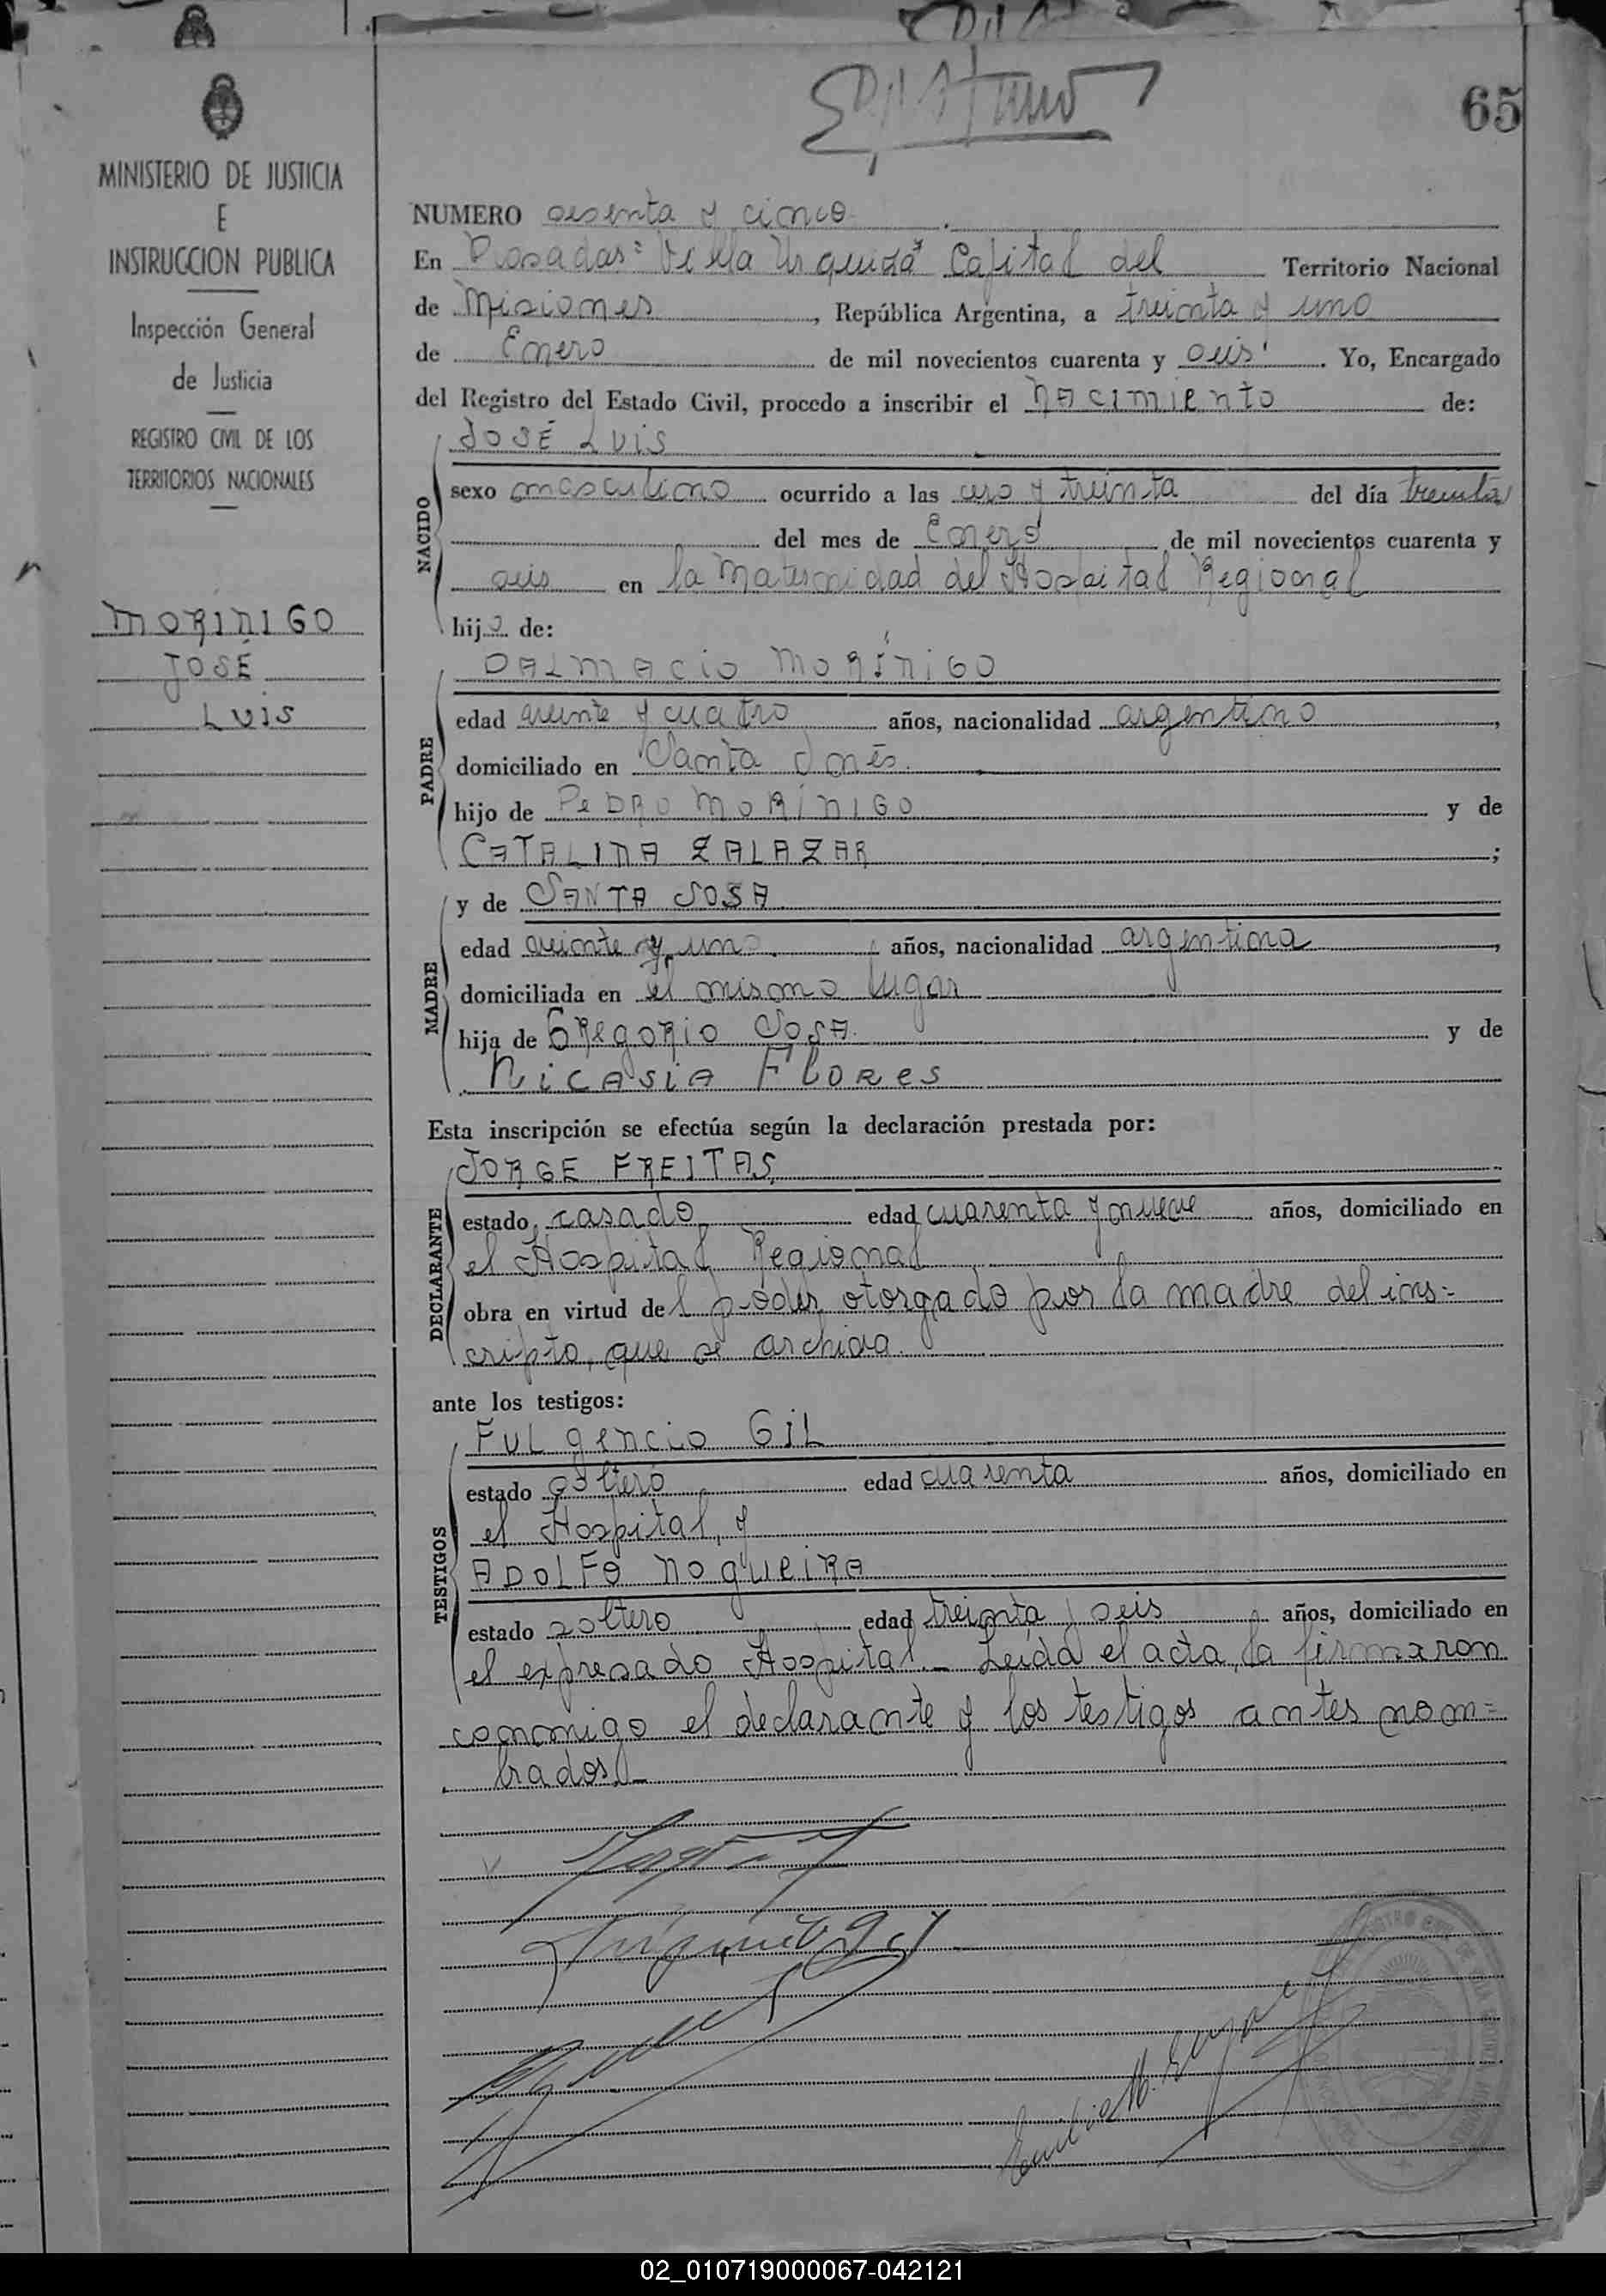 65
MINISTERIO DE JUSTICIA
E
INSTRUCCION PUBLICA
Inspección General
de Justicia
REGISTRO CIVIL DE LOS
TERRITORIOS NACIONALES
MORÍNIGO
JOSÉ
LUIS
NUMERO sesenta y cinco
En Posadas "Villa Urquiza" Capital del Territorio Nacional
de Misiones, República Argentina, a treinta y uno
de Enero de mil novecientos cuarenta y seis. Yo, Encargado
del Registro del Estado Civil, procedo a inscribir el NACIMIENTO de:
JOSÉ LUIS
NACIDO
sexo masculino ocurrido a las cero y treinta del día treinta
del mes de Enero de mil novecientos cuarenta y
seis en la Maternidad del Hospital Regional
hijo de:
DALMACIO MORÍNIGO
PADRE
edad veinte y cuatro años, nacionalidad argentino,
domiciliado en Santa Inés.
hijo de PEDRO MORÍNIGO y de
CATALINA ZALAZAR;
MADRE
y de SANTA SOSA
edad veinte y uno años, nacionalidad argentina,
domiciliada en el mismo lugar
hija de GREGORIO SOSA y de
NICASIA FLORES
Esta inscripción se efectúa según la declaración prestada por:
JORGE FREITAS,
DECLARANTE
estado casado edad cuarenta y nueve años, domiciliado en
el Hospital Regional
obra en virtud del poder otorgado por la madre del ins=
cripto, que se archiva.
ante los testigos:
FULGENCIO GIL
TESTIGOS
estado soltero edad cuarenta años, domiciliado en
el Hospital, y
ADOLFO NOGUEIRA
estado soltero edad treinta y seis años, domiciliado en
el expresado Hospital.- Leída el acta, la firmaron
conmigo el declarante y los testigos antes nom=
brados.-
02_010719000067-042121